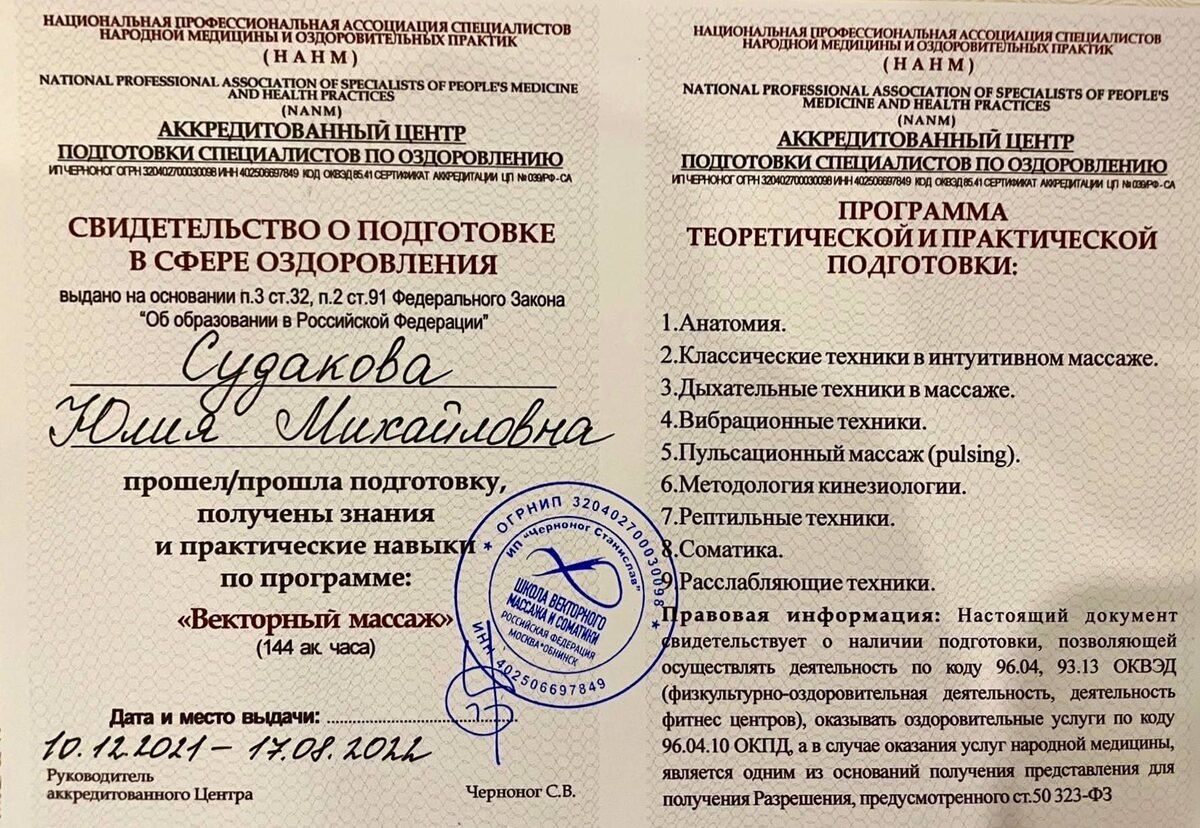 НАЦИОНАЛЬНАЯ ПРОФЕССИОНАЛЬНАЯ АССОЦИАЦИЯ СПЕЦИАЛИСТОВ
НАРОДНОЙ МЕДИЦИНЫ И ОЗДОРОВИТЕЛЬНЫХ ПРАКТИК
(НАНМ)
NATIONAL PROFESSIONAL ASSOCIATION OF SPECIALISTS OF PEOPLE'S MEDICINE
AND HEALTH PRACTICES
(NANM)
АККРЕДИТОВАННЫЙ ЦЕНТР
ПОДГОТОВКИ СПЕЦИАЛИСТОВ ПО ОЗДОРОВЛЕНИЮ
ИП ЧЕРНОНОГ ОГРН 320402700030098 ИНН 402506697849 КОД ОКВЭД 85.41 СЕРТИФИКАТ АККРЕДИТАЦИИ ЦП № 039/РФ - СА
СВИДЕТЕЛЬСТВО О ПОДГОТОВКЕ
В СФЕРЕ ОЗДОРОВЛЕНИЯ
выдано на основании п.3 ст.32, п.2 ст.91 Федерального Закона
"Об образовании в Российской Федерации"
Судакова
Юлия Михайловна
прошел/прошла подготовку,
получены знания
и практические навыки
по программе:
«Векторный массаж»
(144 ак. часа)
Дата и место выдачи:
10.12.2021 – 17.08.2022
Руководитель
аккредитованного Центра
Черноног С.В.
★ ОГРНИП 320402700030098 ★
ИНН 402506697849
ИП "Черноног Станислав"
ШКОЛА ВЕКТОРНОГО
МАССАЖА И СОМАТИКИ
РОССИЙСКАЯ ФЕДЕРАЦИЯ
МОСКВА*ОБНИНСК
НАЦИОНАЛЬНАЯ ПРОФЕССИОНАЛЬНАЯ АССОЦИАЦИЯ СПЕЦИАЛИСТОВ
НАРОДНОЙ МЕДИЦИНЫ И ОЗДОРОВИТЕЛЬНЫХ ПРАКТИК
(НАНМ)
NATIONAL PROFESSIONAL ASSOCIATION OF SPECIALISTS OF PEOPLE'S
MEDICINE AND HEALTH PRACTICES
(NANM)
АККРЕДИТОВАННЫЙ ЦЕНТР
ПОДГОТОВКИ СПЕЦИАЛИСТОВ ПО ОЗДОРОВЛЕНИЮ
ИП ЧЕРНОНОГ ОГРН 320402700030098 ИНН 402506697849 КОД ОКВЭД 85.41 СЕРТИФИКАТ АККРЕДИТАЦИИ ЦП № 039/РФ - СА
ПРОГРАММА
ТЕОРЕТИЧЕСКОЙ И ПРАКТИЧЕСКОЙ
ПОДГОТОВКИ:
1.Анатомия.
2.Классические техники в интуитивном массаже.
3.Дыхательные техники в массаже.
4.Вибрационные техники.
5.Пульсационный массаж (pulsing).
6.Методология кинезиологии.
7.Рептильные техники.
8.Соматика.
9.Расслабляющие техники.
Правовая информация: Настоящий документ
свидетельствует о наличии подготовки, позволяющей
осуществлять деятельность по коду 96.04, 93.13 ОКВЭД
(физкультурно-оздоровительная деятельность, деятельность
фитнес центров), оказывать оздоровительные услуги по коду
96.04.10 ОКПД, а в случае оказания услуг народной медицины,
является одним из оснований получения представления для
получения Разрешения, предусмотренного ст.50 323-ФЗ